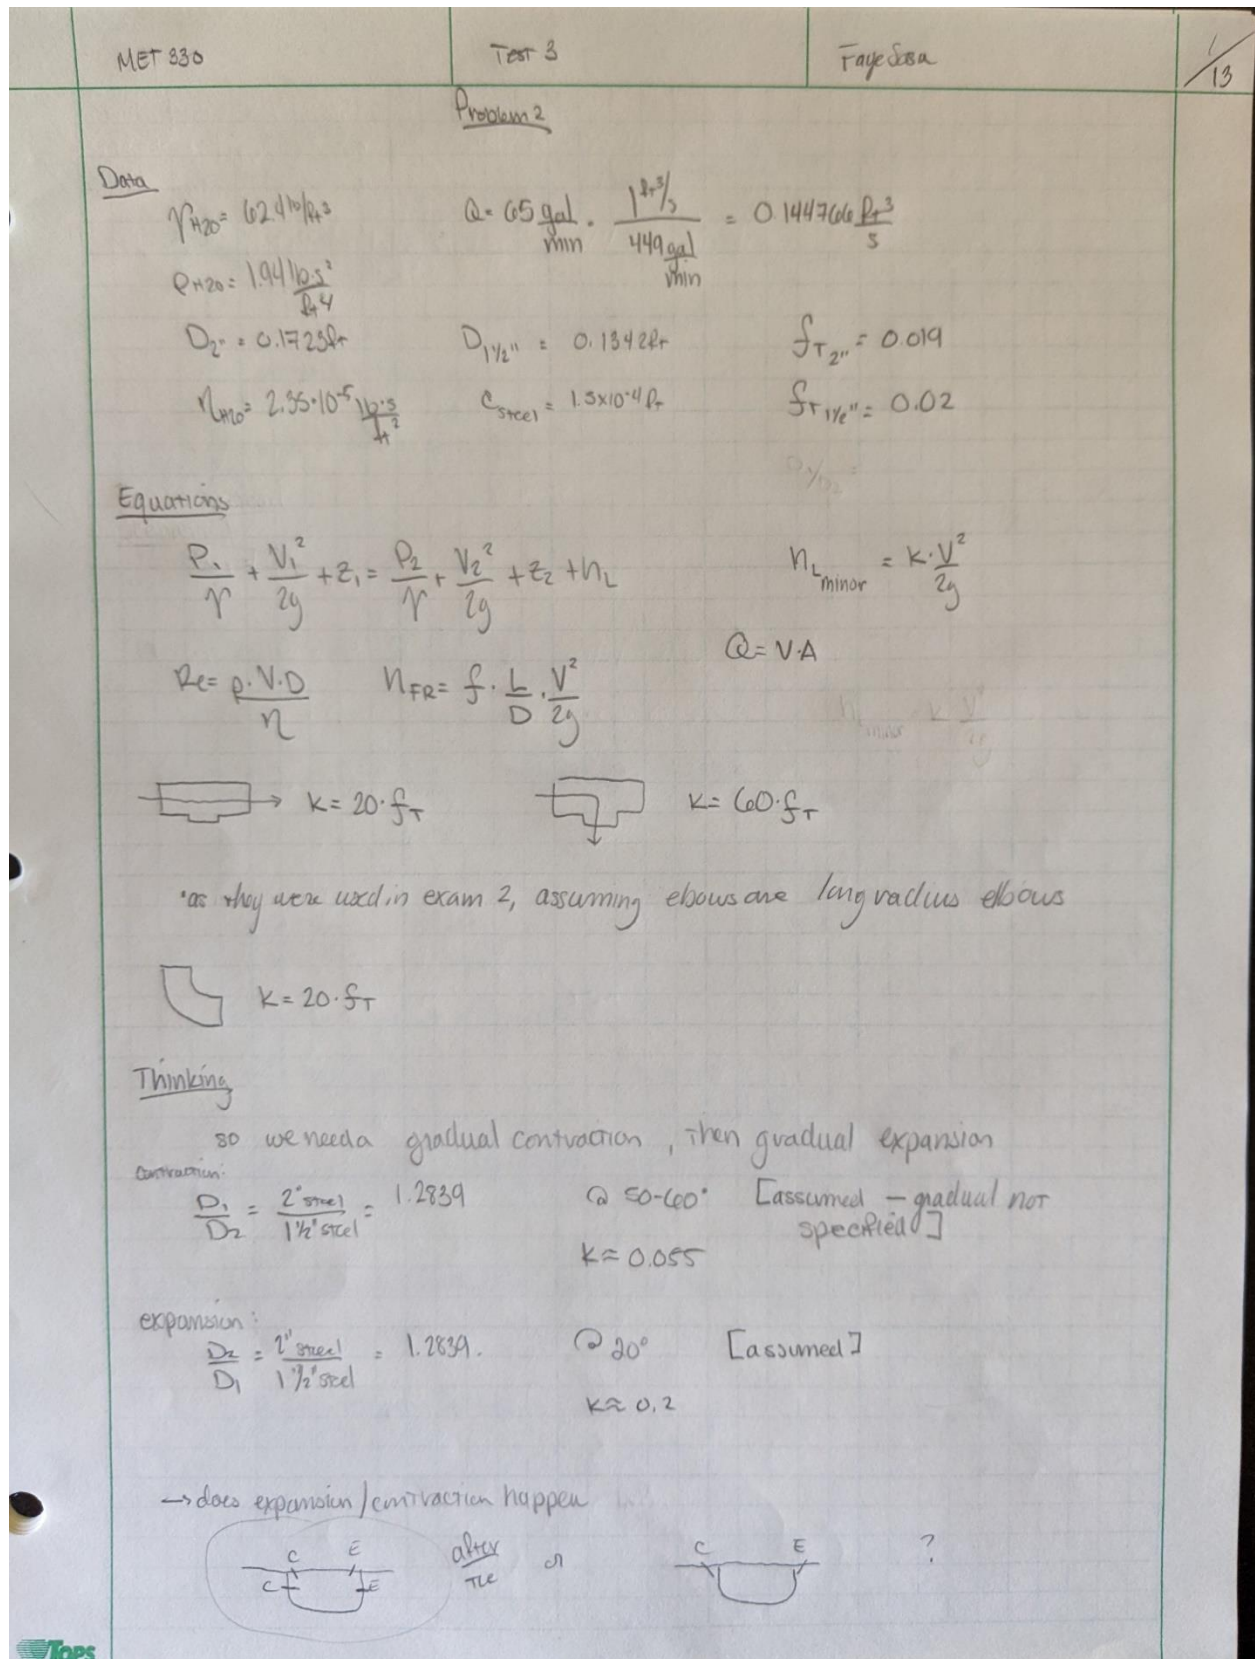 MET 330 Test 3 Faye Sosa 1/13
Problem 2
Data
γH2O = 62.4 lb/ft³ Q = 65 gal/min · 1 ft³/s / 449 gal/min = 0.144766 ft³/s
ρH2O = 1.94 lb·s²/ft⁴
D2" = 0.1723ft D1½" = 0.1342ft fT2" = 0.019
ηH2O = 2.35·10⁻⁵ lb·s/ft² esteel = 1.5x10⁻⁴ ft fT1½" = 0.02
Equations
P₁/γ + V₁²/2g + z₁ = P₂/γ + V₂²/2g + z₂ + hL hLminor = k·V²/2g
Q = V·A
Re = ρ·V·D/η hFR = f·L/D·V²/2g
k = 20·fT k = 60·fT
*as they were used in exam 2, assuming ebows are long radius elbows
k = 20·fT
Thinking
so we need a gradual contraction, then gradual expansion
contraction:
D₁/D₂ = 2" steel/1½" steel = 1.2839 @ 50-60° [assumed - gradual not
specified]
k ≈ 0.055
expansion:
D₂/D₁ = 2" steel/1½" steel = 1.2839. @ 20° [assumed]
k ≈ 0.2
→ does expansion/contraction happen
C E after C E
C E TEE or ?
TOPS